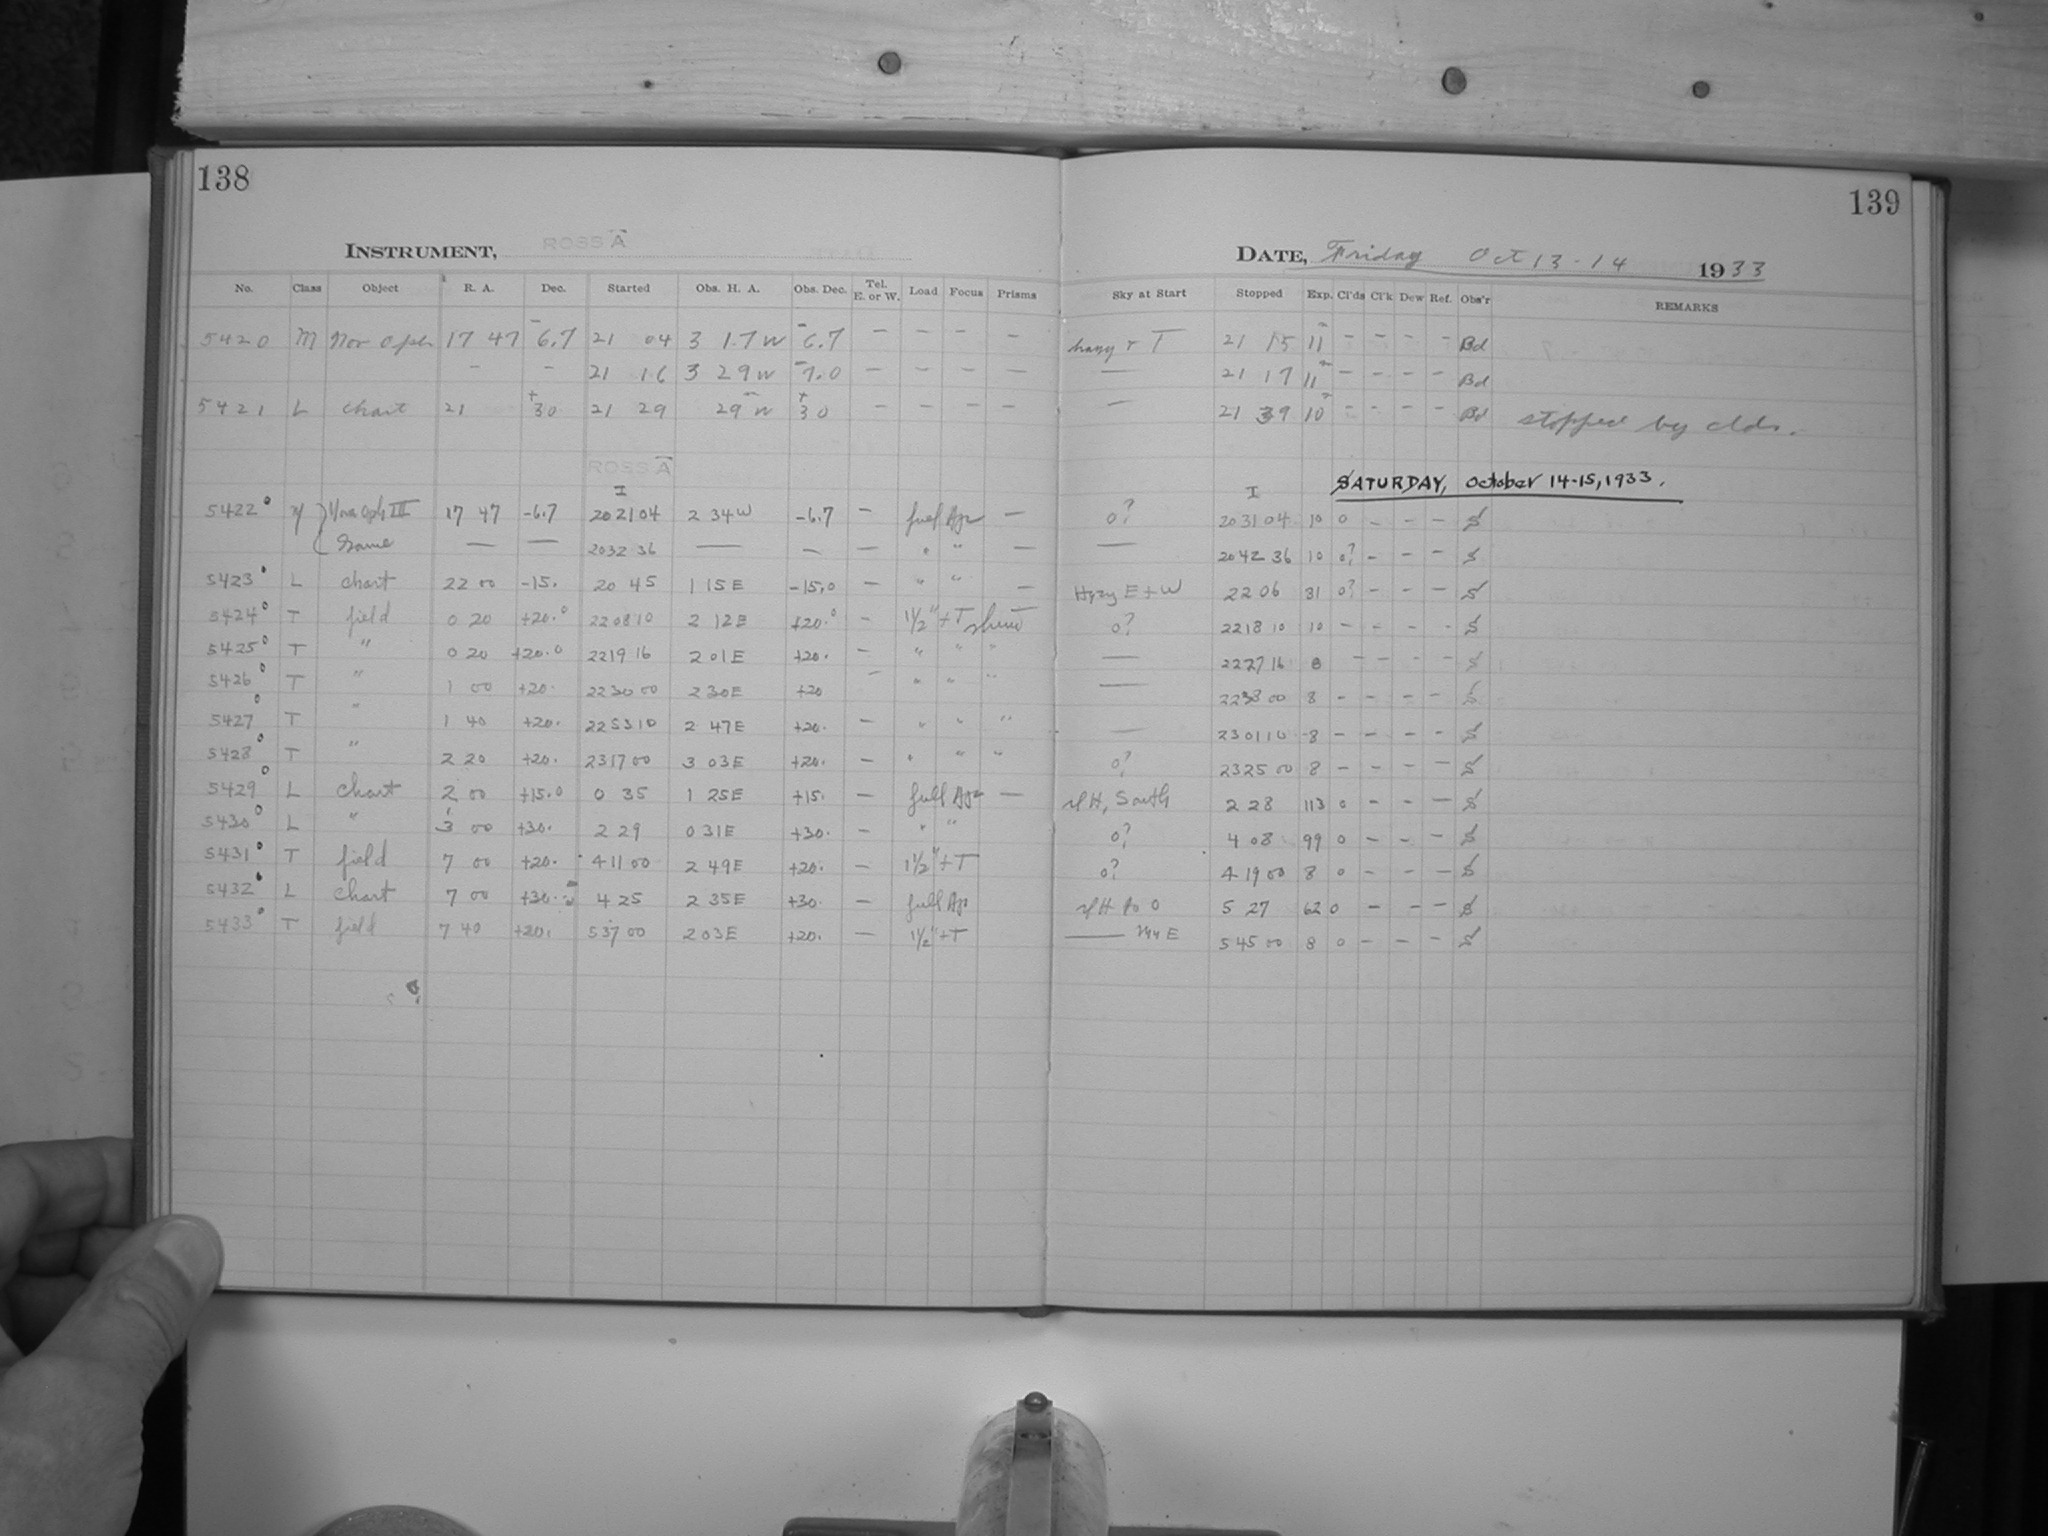 138
139
INSTRUMENT, ROSS A
DATE, Friday Oct 13-14 1933
No. Class Object R. A. Dec. Started Obs. H. A. Obs. Dec. Tel. E. or W. Load Focus Prisms Sky at Start Stopped Exp. Cl'ds Cl'k Dew Ref. Obs'r REMARKS
5420 M Nov Oph 17 47 -6.7 21 04 3 17 W -6.7 — — — hazy + T 21 15 11 - - - - Bd
- - 21 16 3 29 W -7.0 — — — — — 21 17 11 - - - - Bd
5421 L chart 21 +30 21 29 29 W +30 — — — — — 21 39 10 - - - - Bd stopped by clds.
ROSS A
SATURDAY, October 14-15, 1933.
I I
5422 Nova Oph III 17 47 -6.7 20 21 04 2 34 W -6.7 — full Apr — 0? 20 31 04 10 0 - - -
Same — — 20 32 36 — — — " " — — 20 42 36 10 0? - - -
5423 L chart 22 00 -15. 20 45 1 15 E -15.0 — " " — Hazy E + W 22 06 81 0? - - -
5424 T field 0 20 +20.0 22 08 10 2 12 E +20.0 — 1 1/2" + T 0? 22 18 10 10 - - - -
5425 T " 0 20 +20.0 22 19 16 2 01 E +20. — " " " — 22 27 16 8 - - -
5426 T " 1 00 +20. 22 30 00 2 30 E +20 — " " " — 22 38 00 8 - - - -
5427 T " 1 40 +20. 22 53 10 2 47 E +20. — " " " — 23 01 10 8 - - - -
5428 T " 2 20 +20. 23 17 00 3 03 E +20. — " " " 0? 23 25 00 8 - - - -
5429 L chart 2 00 +15.0 0 35 1 25 E +15. — full Apr — H, South 2 28 113 0 - - -
5430 L " 3 00 +30. 2 29 0 31 E +30. — " " 0? 4 08 99 0 - - -
5431 T field 7 00 +20. 4 11 00 2 49 E +20. — 1 1/2" + T 0? 4 19 00 8 0 - - -
5432 L chart 7 00 +30. 4 25 2 35 E +30. — full Apr H to 0 5 27 62 0 - - -
5433 T field 7 40 +20. 5 37 00 2 03 E +20. — 1 1/2" + T — E 5 45 00 8 0 - - -